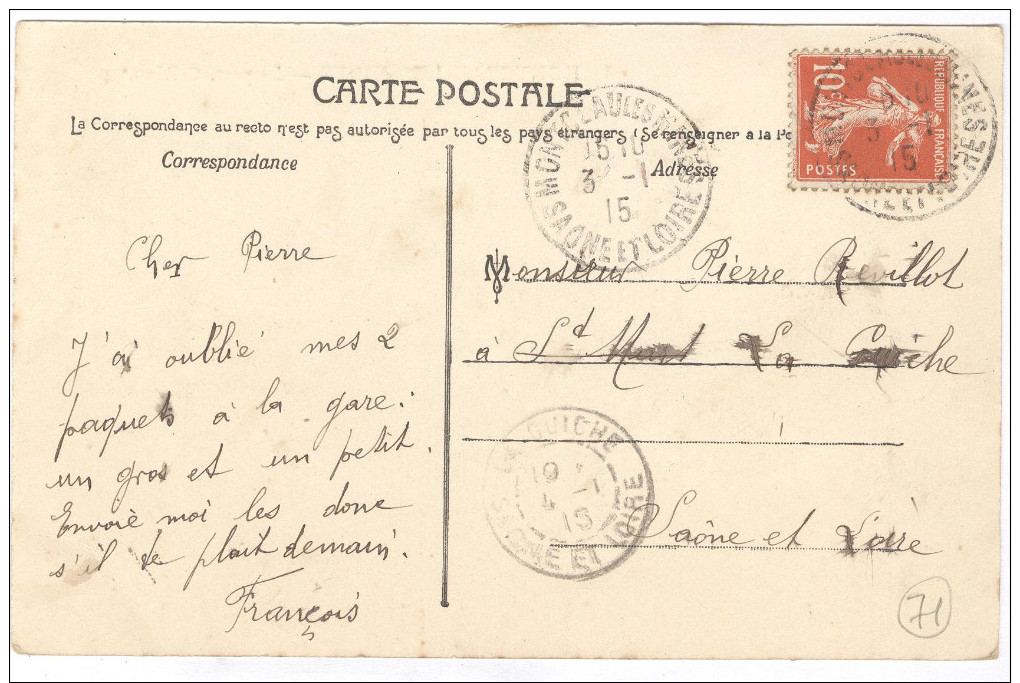 CARTE POSTALE
La Correspondance au recto n'est pas autorisée par tous les pays étrangers (Se renseigner à la Po
Correspondance
Adresse
RÉPUBLIQUE FRANÇAISE
10
POSTES
MONTCEAU LES MINES
15 10
3 -1
15
SAONE ET LOIRE
Cher Pierre
J'ai oublié mes 2
paquets à la gare.
un gros et un petit.
Envoie moi les donc
s'il te plait demain.
François
Monsieur Pierre Revillot
à St Mart La Guiche
Saône et Loire
LA GUICHE
19
4 -1
15
SAONE ET LOIRE
71